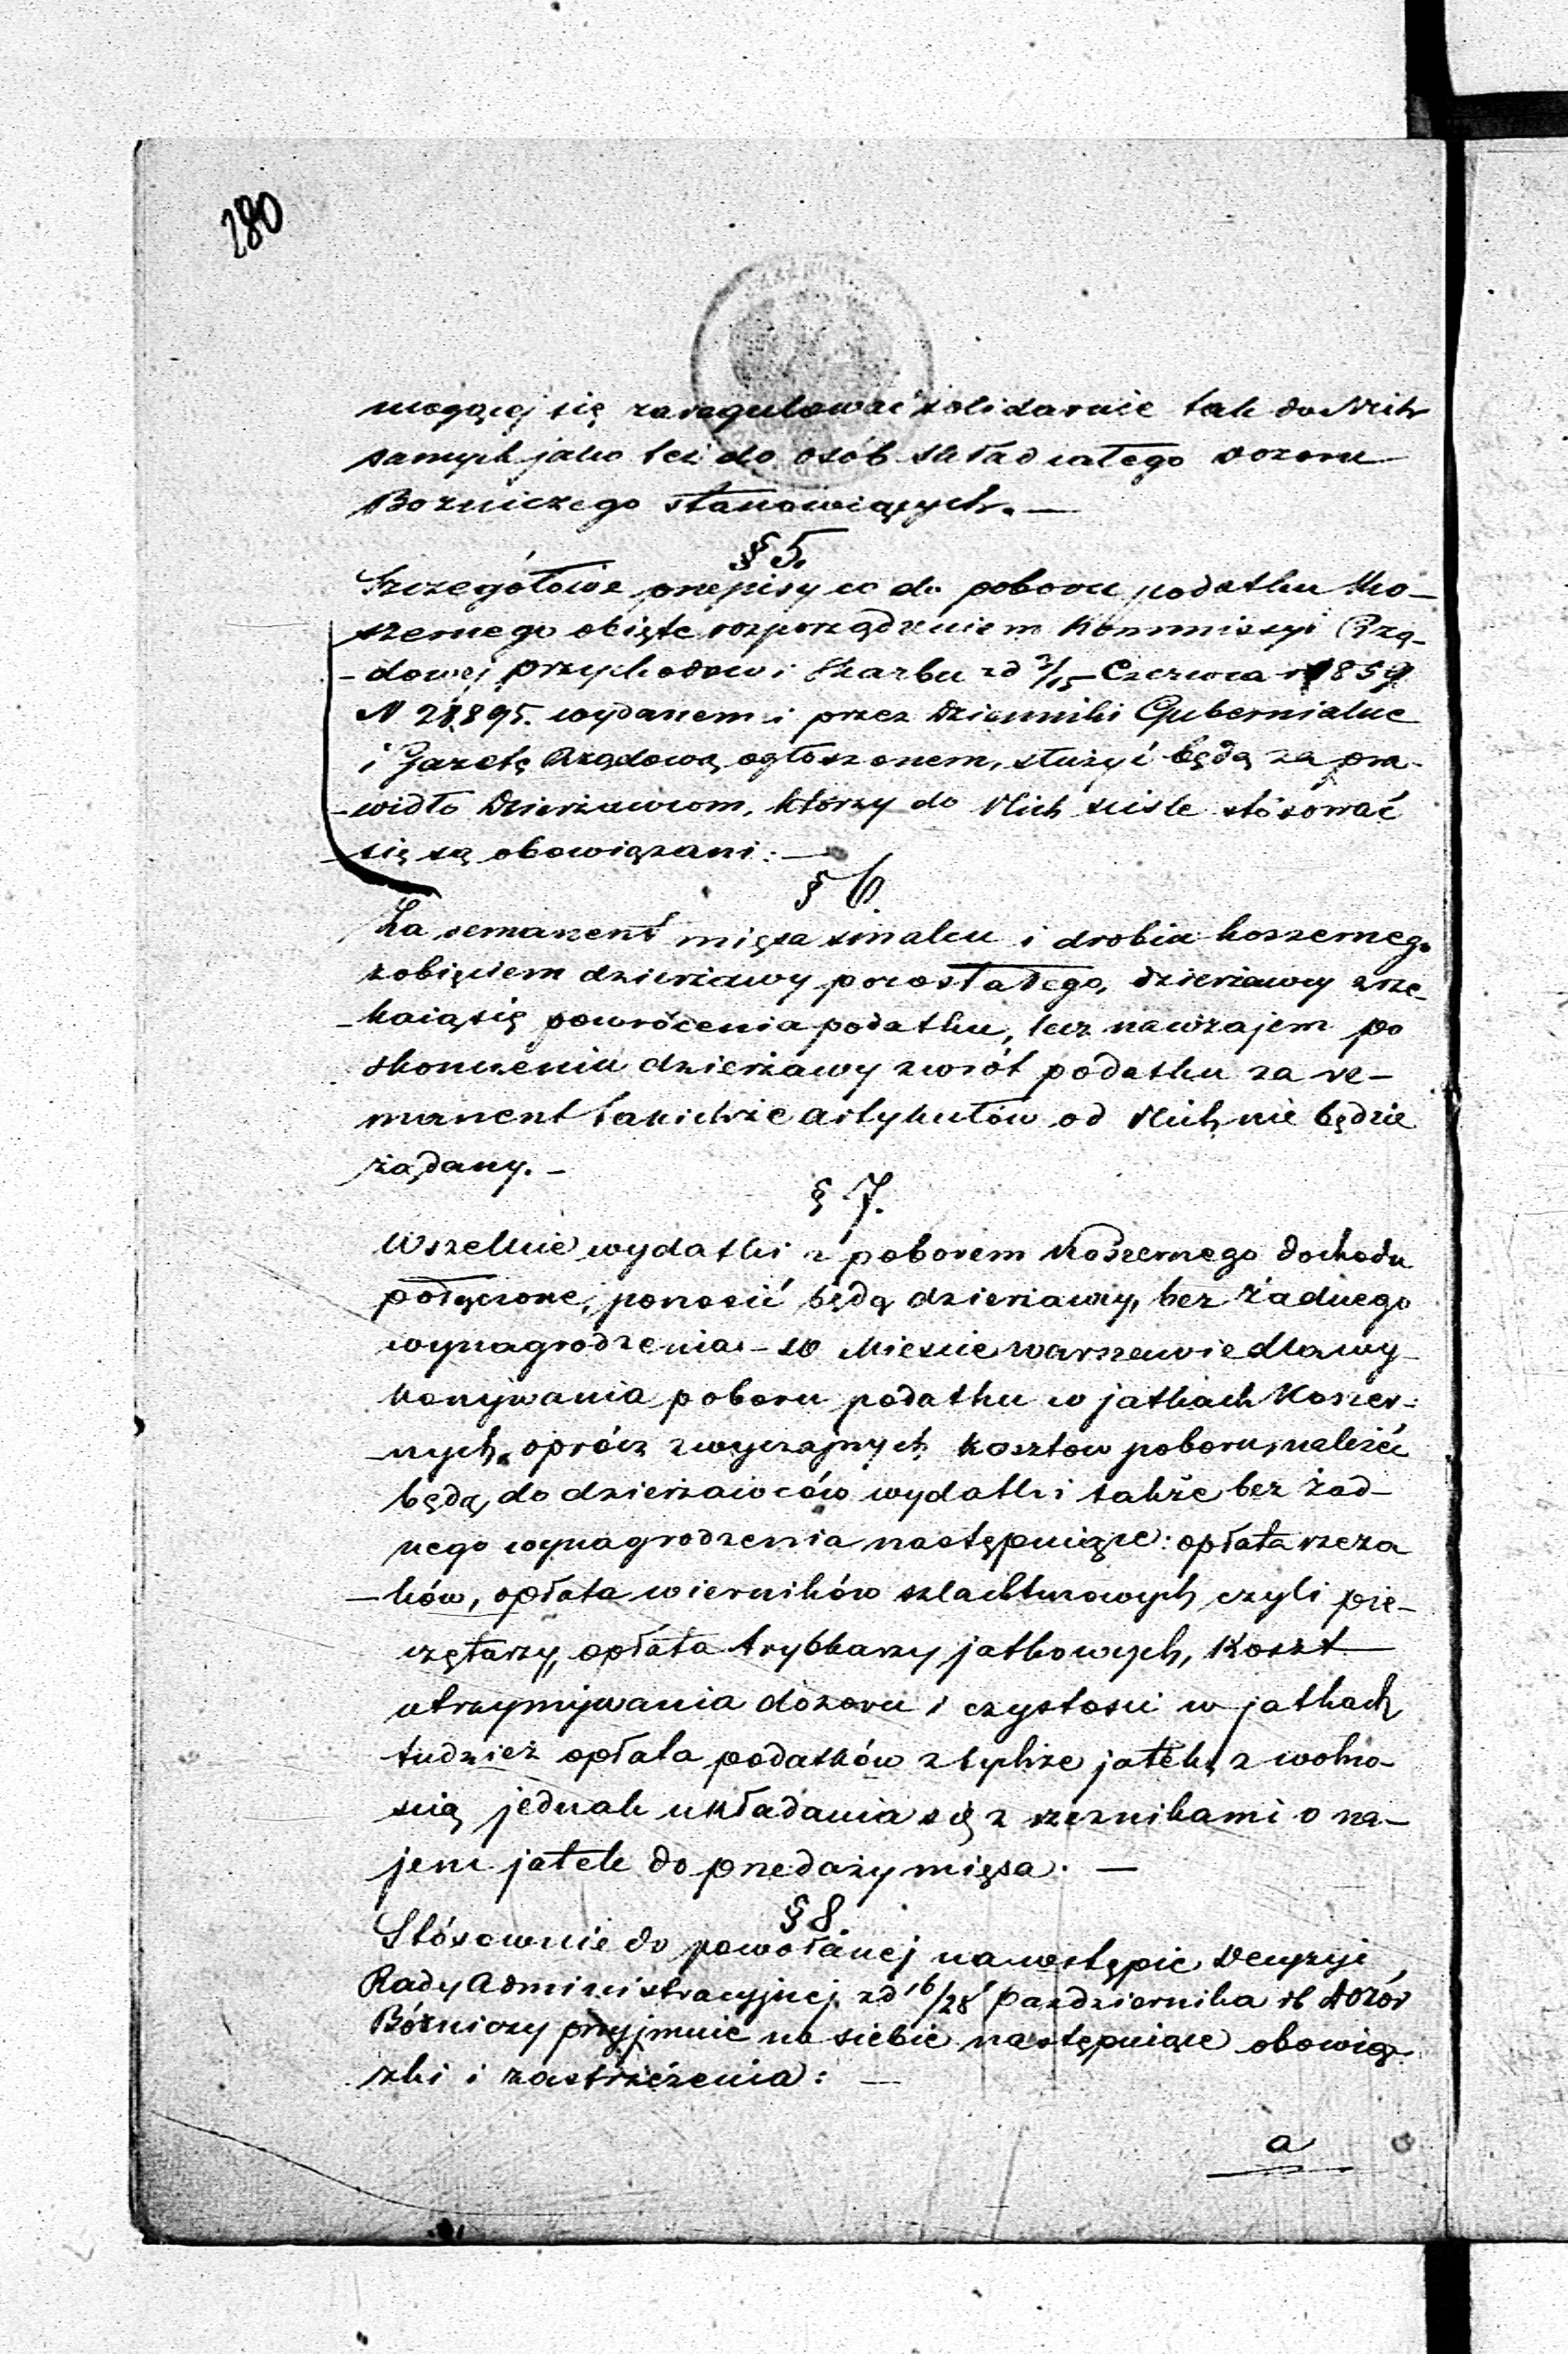 280
mogącej się zaregulować solidarnie tak do Nich
samych jako też do osób skład całego Dozoru
Bożniczego stanowiących. —
§ 5.
Szczegółowe przepisy co do poboru podatku Ko-
szernego objęte rozporządzeniem Kommissyi Rzą-
-dowej Przychodów i Skarbu zd 3/15 Czerwca r 1859
N 28895. wydanem i przez Dzienniki Gubernialne
i Gazetę Rządową ogłoszonem, służyć będą za pra-
-widło Dzierżawcom, którzy do Nich ściśle stósować
się są obowiązani. —
§ 6.
Za remanent mięsa smalcu i drobiu koszernego
z objęciem dzierżawy pozostałego, dzierżawcy zrze-
-kaią się powrócenia podatku, lecz nawzajem po
skończeniu dzierżawy zwrót podatku za re-
manent takichże artykułów od Nich nie będzie
żądany. —
§ 7.
Wszelkie wydatki z poborem Koszernego dochodu
połączone, ponosić będą dzierżawcy, bez żadnego
wynagrodzenia – w Mieście Warszawie dla wy-
konywania poboru podatku w jatkach Koszer-
-nych, oprócz zwyczajnych kosztów poboru, należeć
będą do dzierżawców wydatki także bez żad-
nego wynagrodzenia następuiące: opłata rzeza
-ków, opłata wierników szlachtuzowych czyli pie-
czętarzy, opłata trybkarzy jatkowych, Koszt
utrzymywania dozoru i czystości w jatkach
tudzież opłata podatków z tychże jatek, z wolno-
ścią jednak układania się z rzeznikami o na-
jem jatek do przedaży mięsa. —
§ 8.
Stósownie do powołanej na wstępie Decyzyi
Rady Administracyjnej zd 16/28 Października rb Dozór
Bóżniczy przyjmuie na siebie następuiące obowią-
zki i zastrzeżenia: —
a